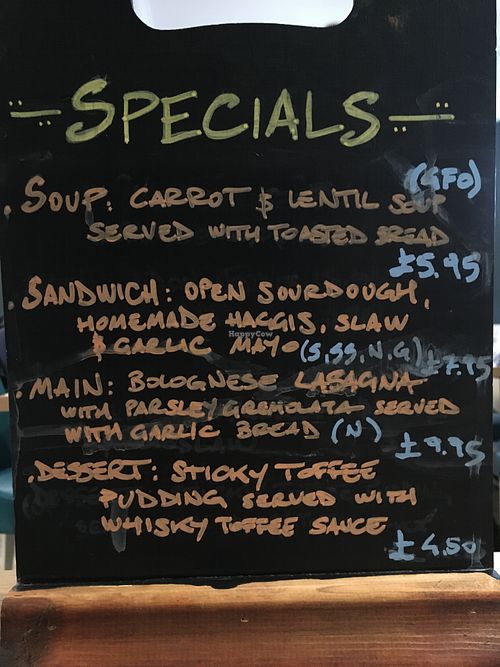 SPECIALS
(GFO)
. SOUP: CARROT & LENTIL SOUP
SERVED WITH TOASTED BREAD
£5.95
. SANDWICH: OPEN SOURDOUGH,
HOMEMADE HAGGIS, SLAW
HappyCow
& GARLIC MAYO (S, SS, N, G) £7.95
. MAIN: BOLOGNESE LASAGNA
WITH PARSLEY GREMOLATA SERVED
WITH GARLIC BREAD (N)
£9.95
. DESSERT: STICKY TOFFEE
PUDDING SERVED WITH
WHISKY TOFFEE SAUCE
£4.50